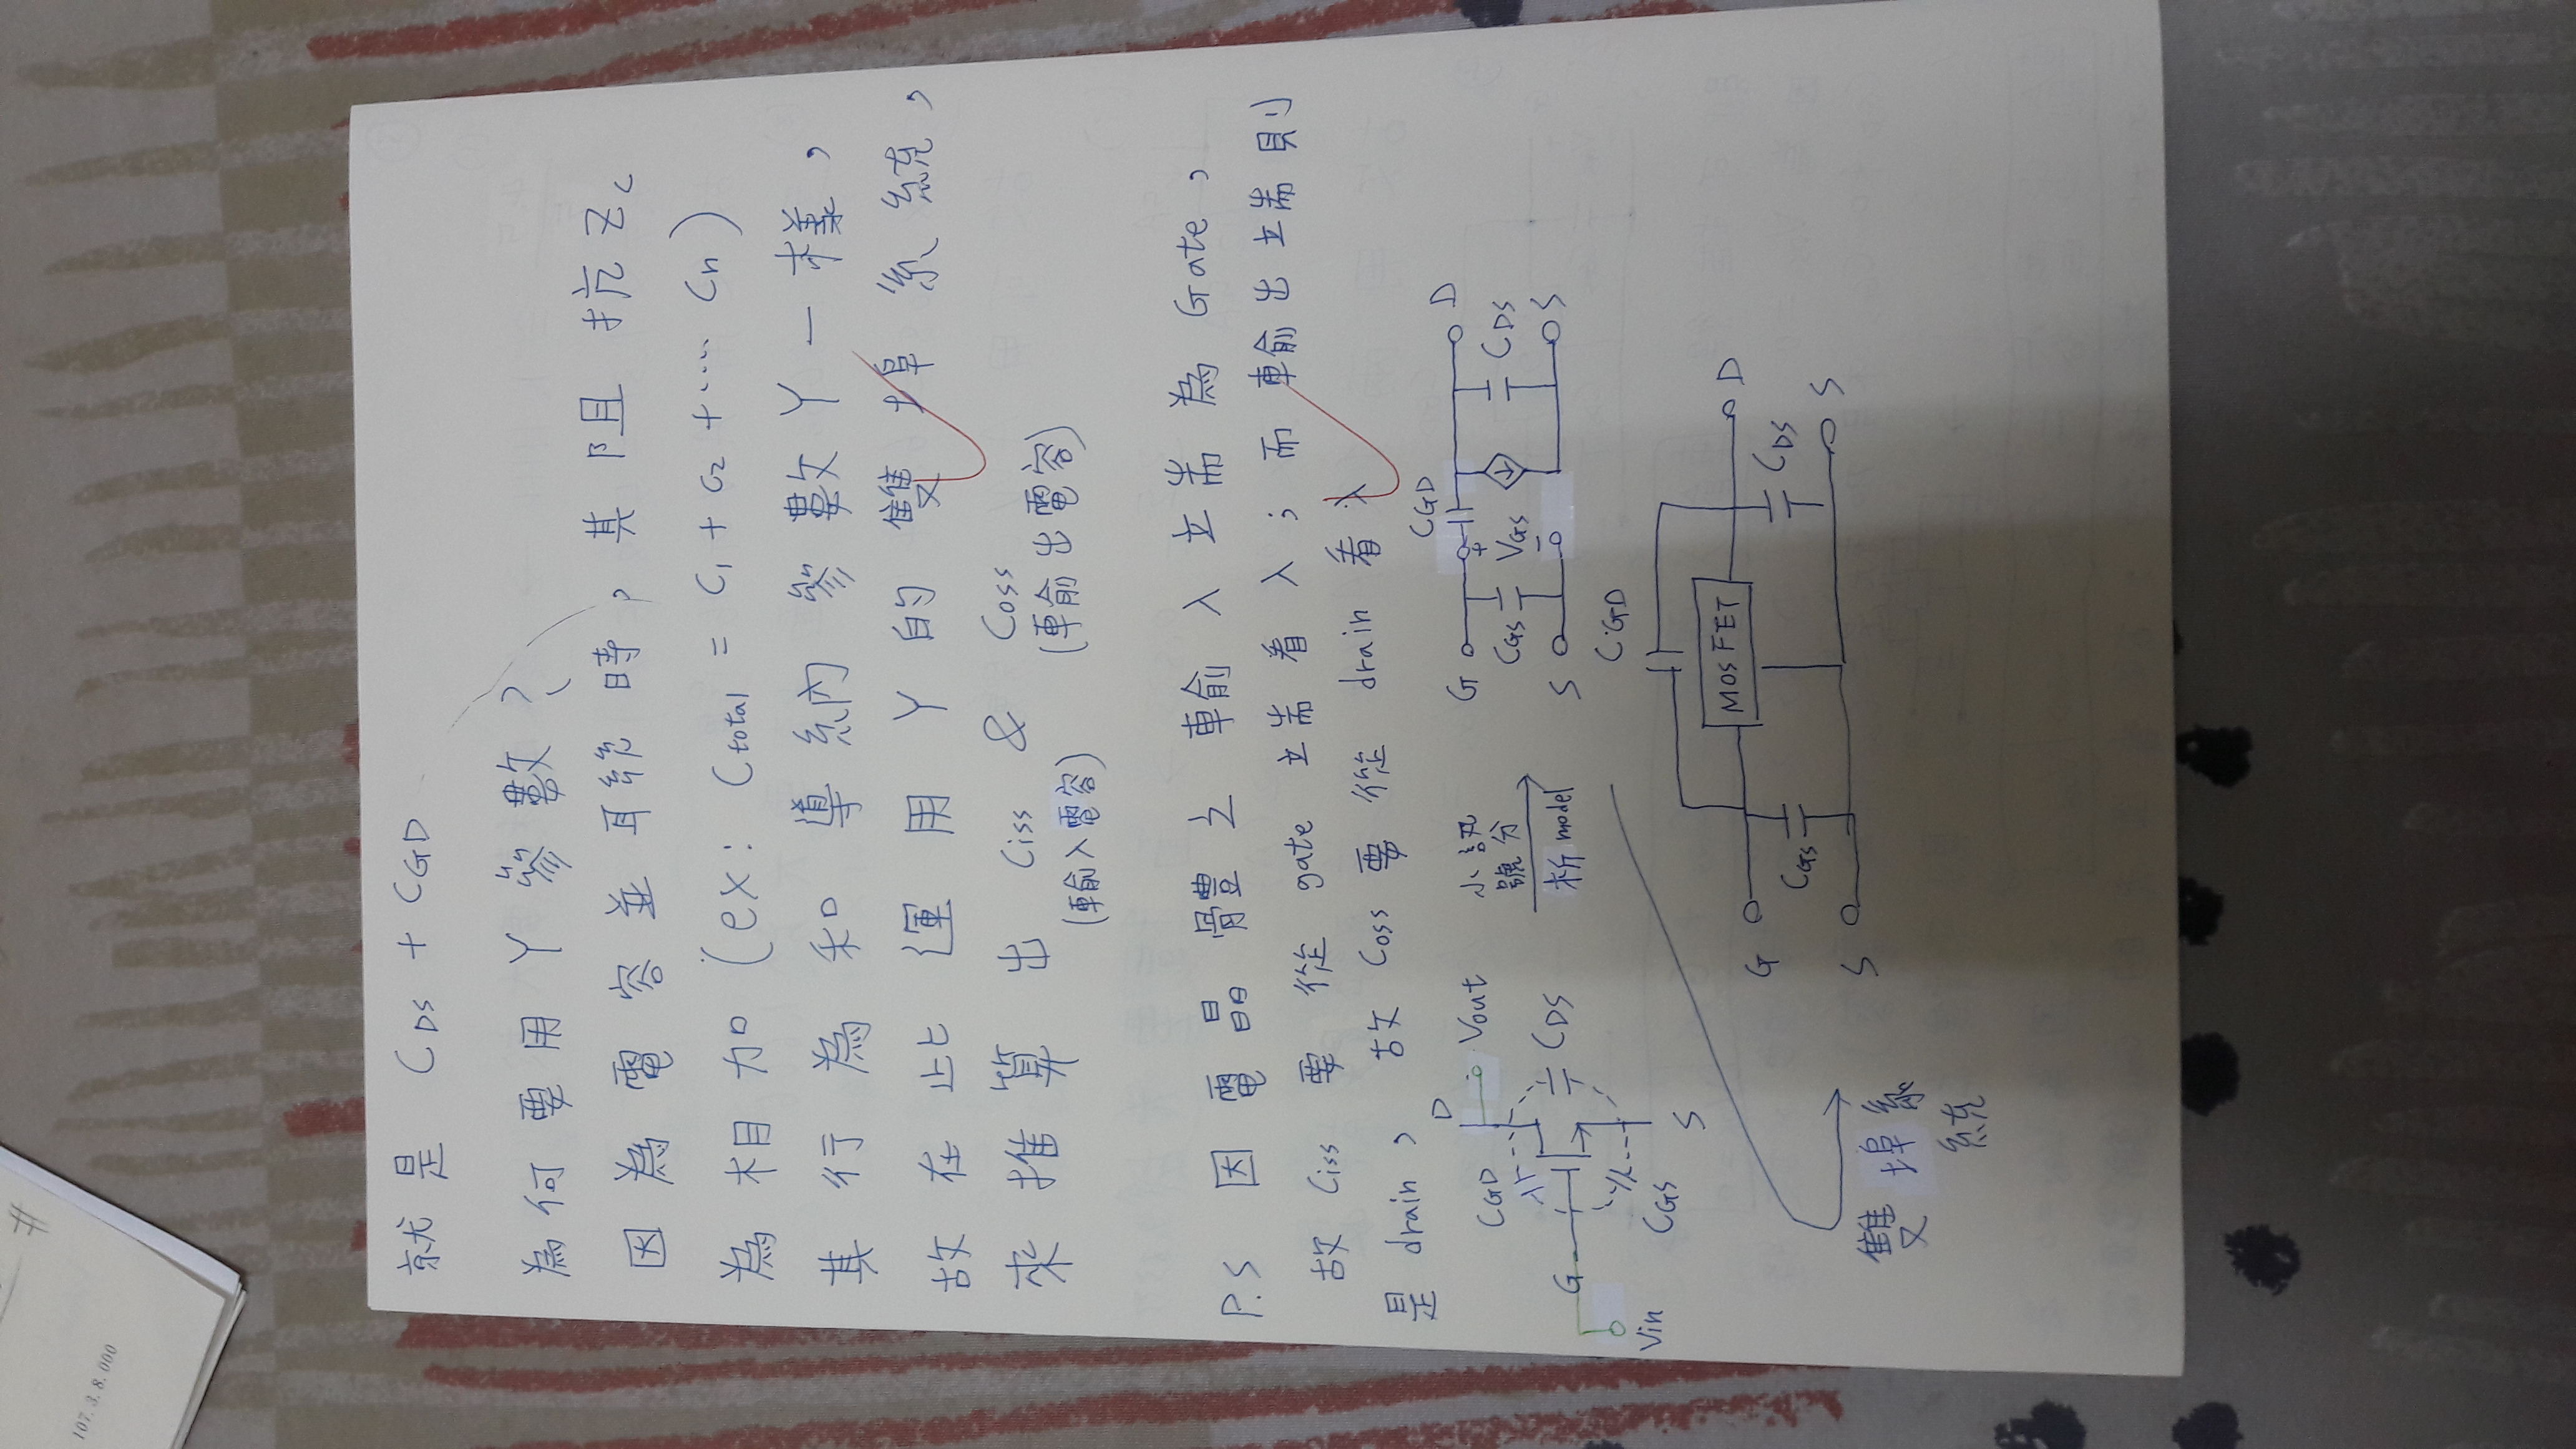 #
107.3.8.000
就是 CDS + CGD
為何要用Y參數?
因為電容並聯時，其阻抗Zc
為相加(ex: Ctotal = C1 + C2 + ···· Cn)
其行為和導納參數Y一樣，
故在此運用Y的雙埠系統，
來推算出 Ciss & Coss
(輸入電容) (輸出電容)
P.S 因電晶體之輸入端為Gate，
故Ciss要從gate端看入；而輸出端則
是drain，故Coss要從drain看入
D
Vout
CGD
CDS
G
Vin
CGS
S
小訊
號分
析model
CGD
G
D
CGS
+
VGS
-
CDS
S
S
CGD
MOSFET
G
D
CGS
CDS
S
S
雙埠系
統